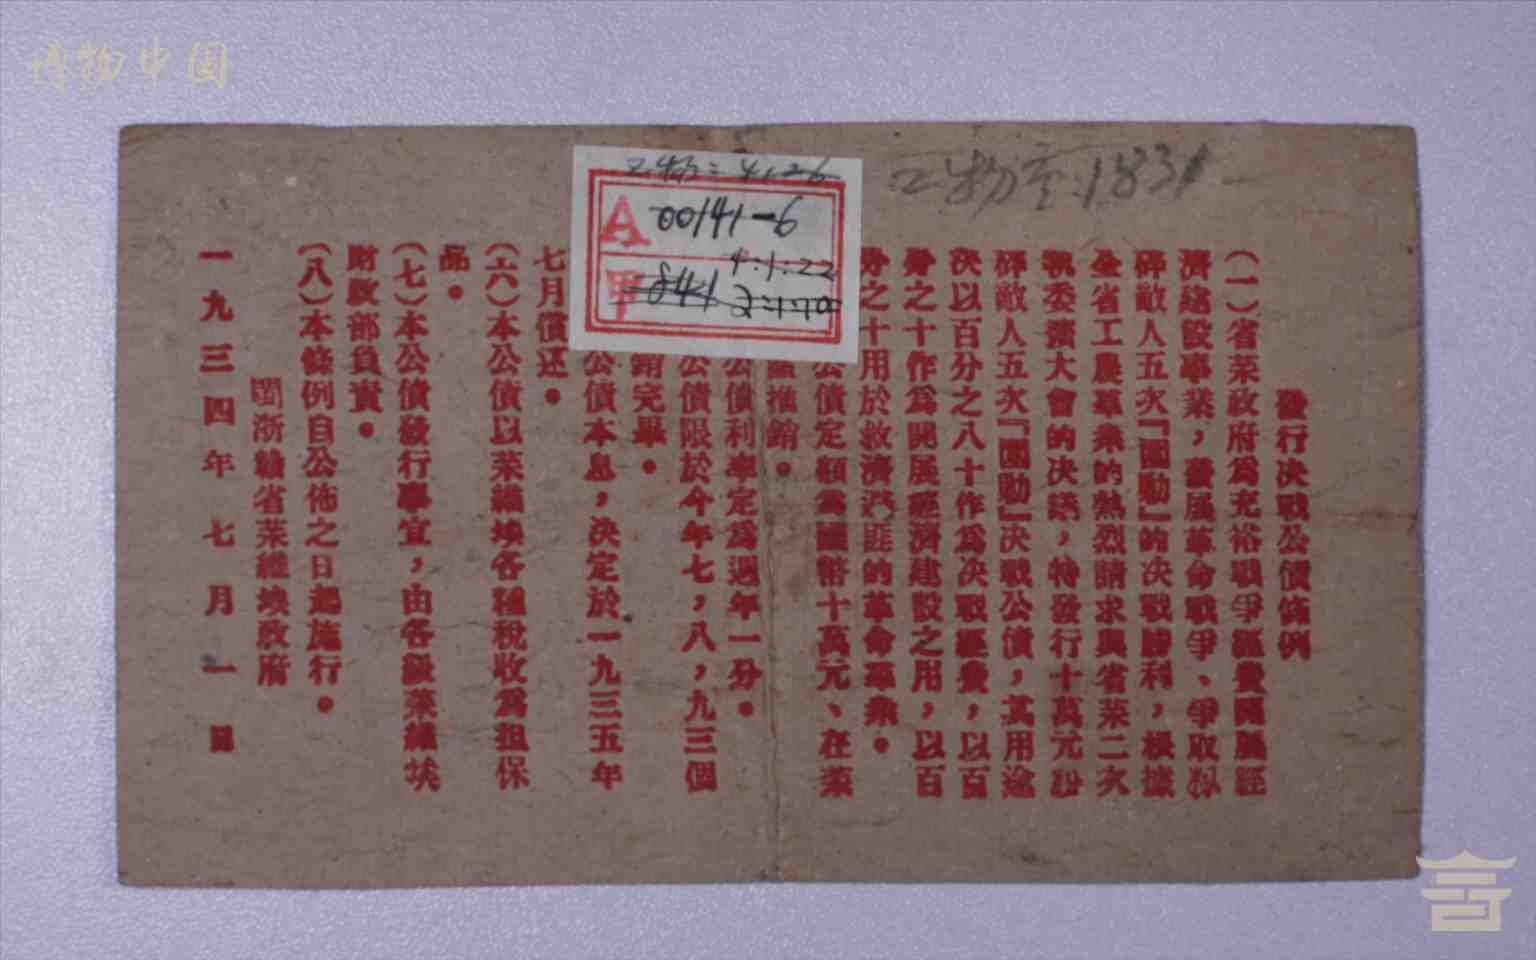 博物中国
工物:4.1.26
A 00141-6
4:1:22
甲 841 2:1:79
發行決戰公債條例
(一)省蘇政府爲充裕戰爭經費開展經
濟建設事業,發展革命戰爭、爭取粉
碎敵人五次「圍勦」的決戰勝利,根據
全省工農羣衆的熱烈請求與省蘇二次
執委擴大會的決議,特發行十萬元粉
碎敵人五次「圍勦」決戰公債,其用途
決以百分之八十作爲決戰經費,以百
分之十作爲開展經濟建設之用,以百
分之十用於救濟避匪的革命羣衆。
公債定額爲國幣十萬元、在蘇
推銷。
公債利率定爲週年一分。
公債限於今年七,八,九三個
銷完畢。
公債本息,決定於一九三五年
七月償还。
(六)本公債以蘇維埃各種稅收爲担保
品。
(七)本公債發行事宜,由各級蘇維埃
財政部負責。
(八)本條例自公佈之日起施行。
閩浙贛省蘇維埃政府
一九三四年七月一日